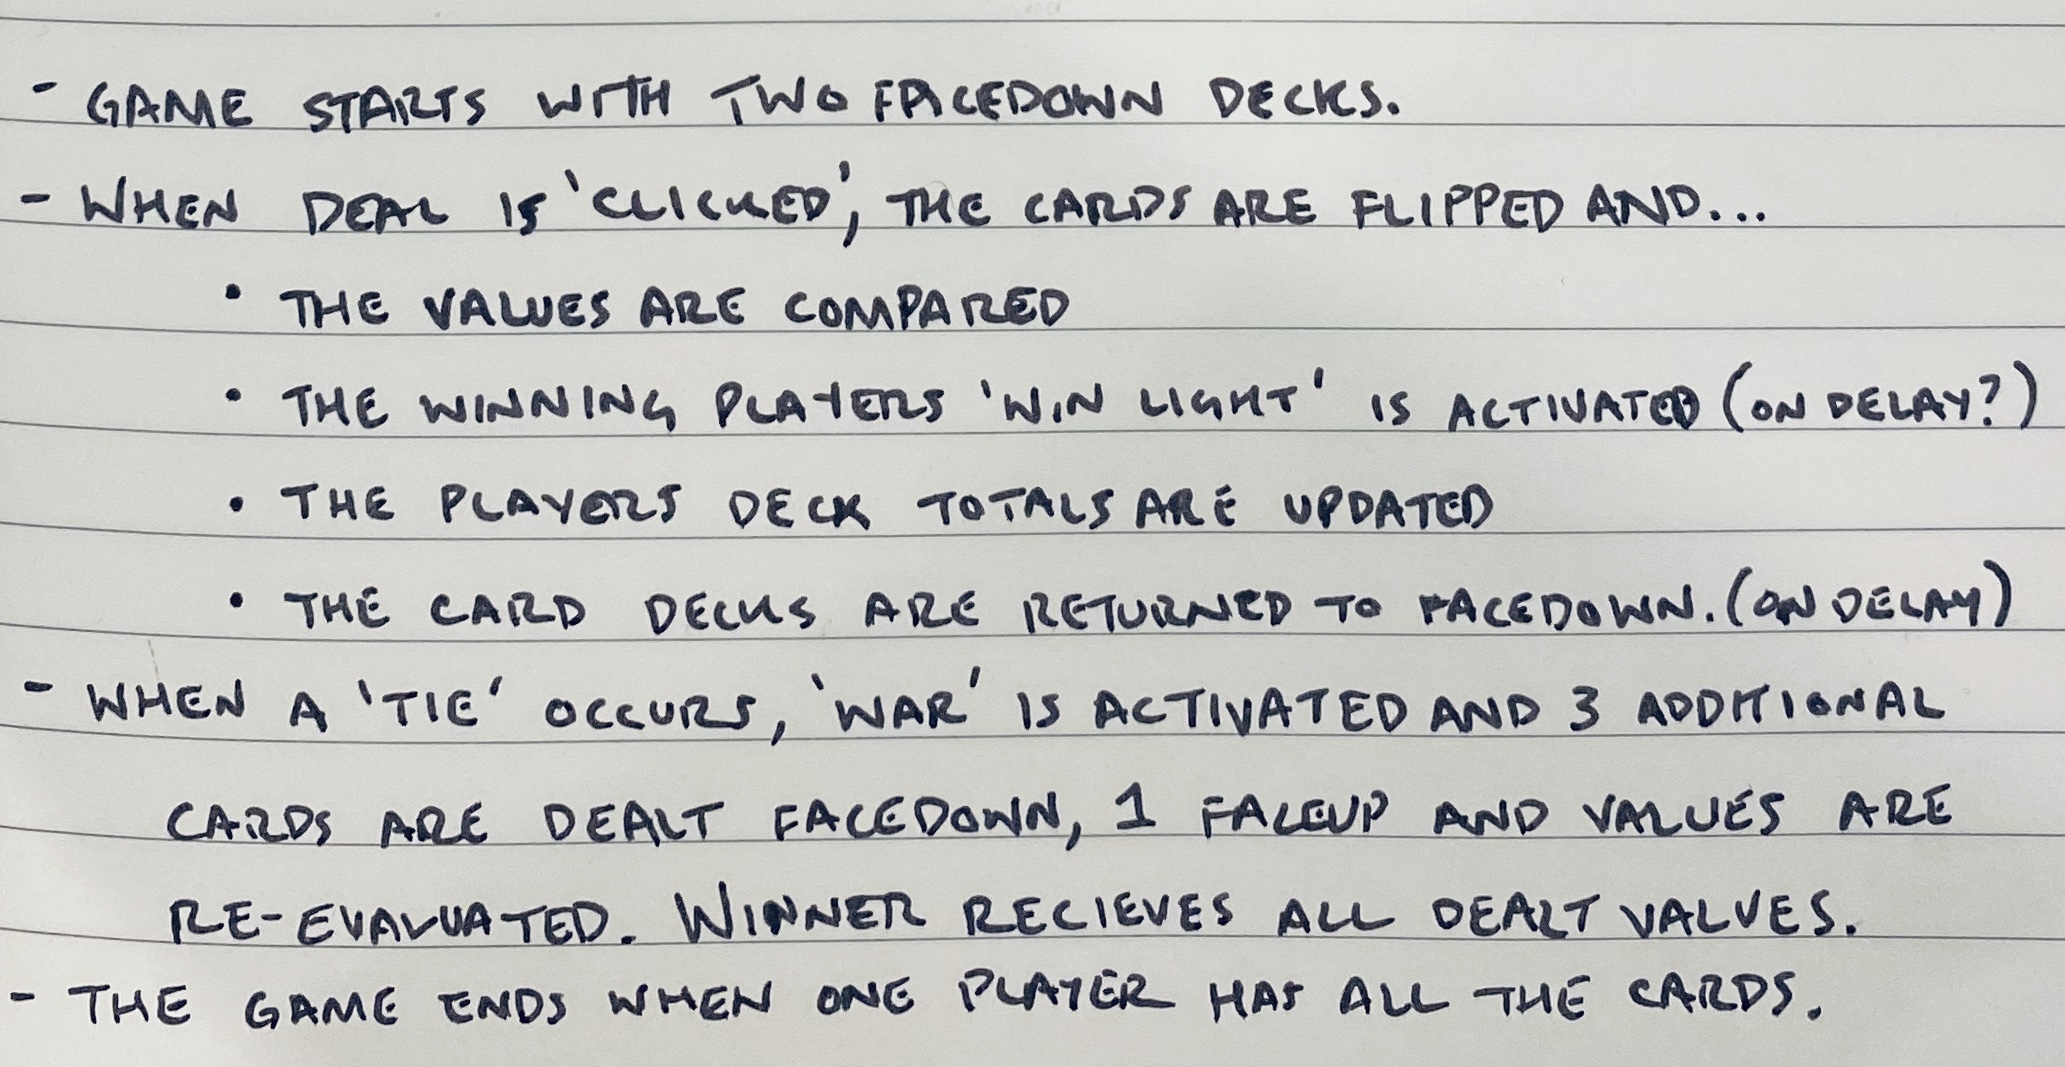 - GAME STARTS WITH TWO FACEDOWN DECKS.
- WHEN DEAL IS 'CLICKED', THE CARDS ARE FLIPPED AND...
• THE VALUES ARE COMPARED
• THE WINNING PLAYERS 'WIN LIGHT' IS ACTIVATED (ON DELAY?)
• THE PLAYERS DECK TOTALS ARE UPDATED
• THE CARD DECKS ARE RETURNED TO FACEDOWN. (ON DELAY)
- WHEN A 'TIE' OCCURS, 'WAR' IS ACTIVATED AND 3 ADDITIONAL
CARDS ARE DEALT FACEDOWN, 1 FACEUP AND VALUES ARE
RE-EVALUATED. WINNER RECIEVES ALL DEALT VALUES.
- THE GAME ENDS WHEN ONE PLAYER HAS ALL THE CARDS.